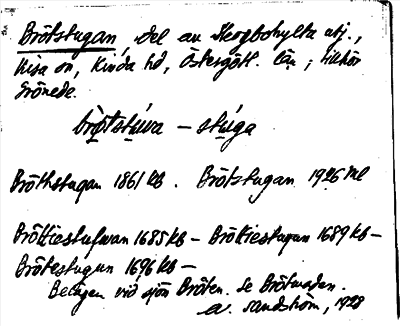 Brötstugan, del av Skogbohylta utj.,
Kisa sn, Kinda hd, Östergötl. län; tillhör
Grönede.
brötstúwa – stúga
Bröthstugan 1861 kb. Brötstugan 1926 ml
Bröttiestufwan 1685 kb – Bröttiestugun 1689 kb –
Brötestugun 1696 kb –
Belägen vid sjön Bröten. Se Brötmaden.
A. Sandström, 1928